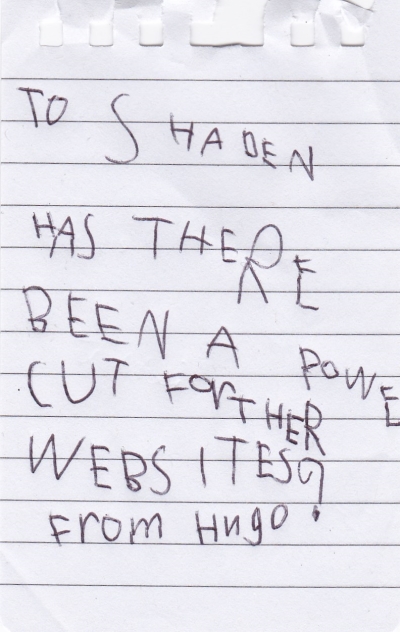 TO SHADEN
HAS THERE
BEEN A POWE
CUT FOR THER
WEBSITES?
From Hugo